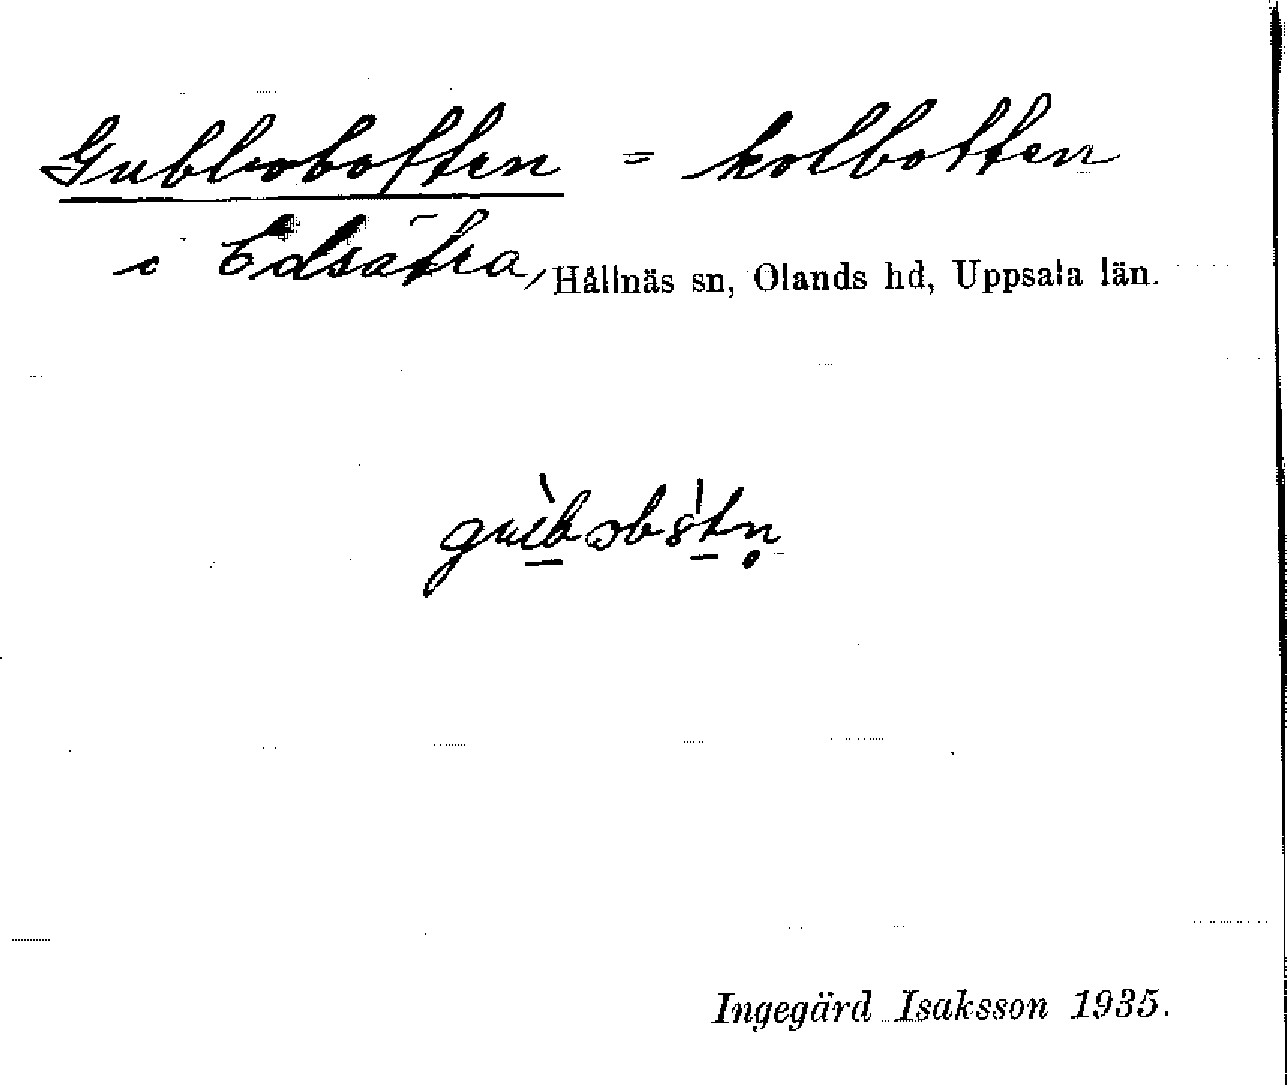 Gubboboften = kolbotten
i Edsätra, Hållnäs sn, Olands hd, Uppsala län.
Ingegärd Isaksson 1935.